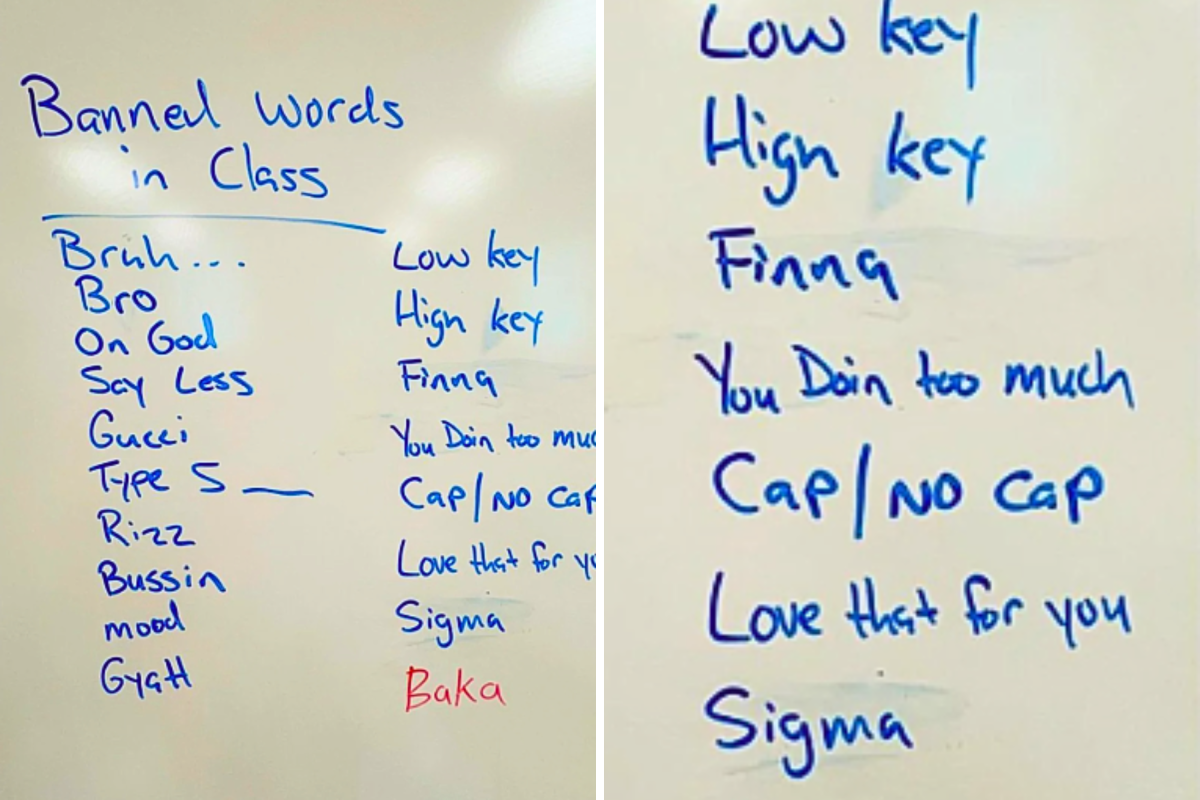 Banned words
in Class
Bruh...
Bro
On God
Say Less
Gucci
Type S __
Rizz
Bussin
mood
Gyatt
Low key
High key
Finna
You Doin too muc
Cap/NO cap
Love that for yo
Sigma
Baka
Low key
High key
Finna
You Doin too much
Cap/NO cap
Love that for you
Sigma